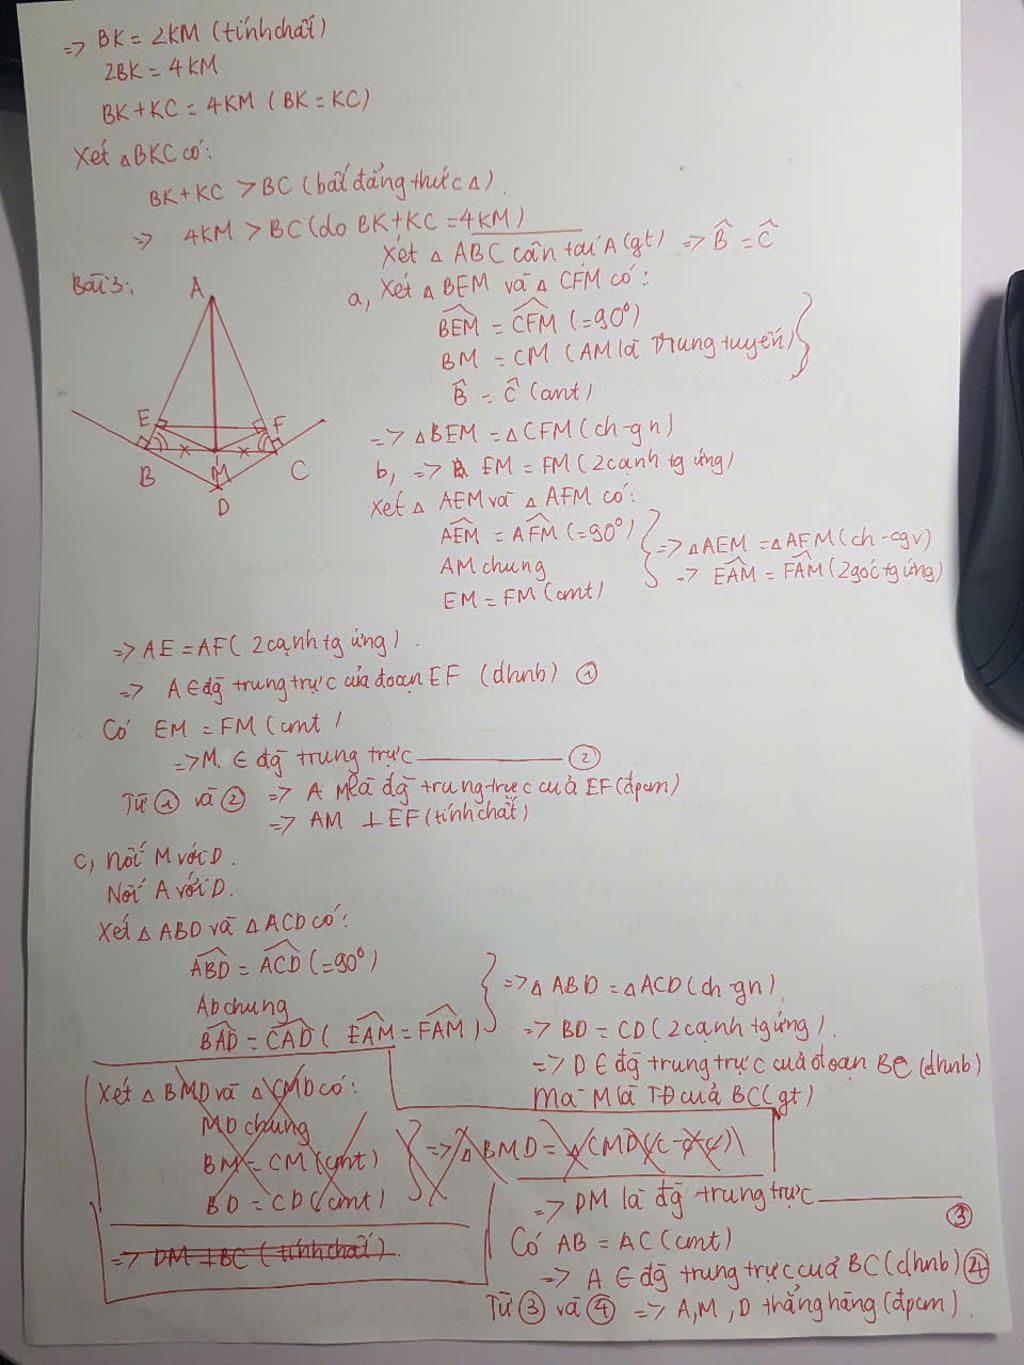 => BK = 2KM (tính chất)
2BK = 4KM
BK + KC = 4KM (BK = KC)
Xét △BKC có:
BK + KC > BC (bất đẳng thức △).
=> 4KM > BC (do BK + KC = 4KM)
Xét △ ABC cân tại A (gt) => B̂ = Ĉ
Bài 3:
a, Xét △ BEM và △ CFM có:
BEM = CFM (= 90°)
BM = CM (AM là trung tuyến)
B̂ = Ĉ (cmt)
=> △BEM = △CFM (ch-gn)
b, => EM = FM (2 cạnh tg ứng)
Xét △ AEM và △ AFM có:
AEM = AFM (= 90°)
AM chung
EM = FM (cmt)
=> △AEM = △AFM (ch-cgv)
=> EAM = FAM (2 góc tg ứng)
A
E
F
B
M
C
D
=> AE = AF (2 cạnh tg ứng).
=> A ∈ đg trung trực của đoạn EF (dhnb) ①
Có EM = FM (cmt)
=> M ∈ đg trung trực ——— ②
Từ ① và ② => AM là đg trung trực của EF (đpcm)
=> AM ⊥ EF (tính chất)
c, Nối M với D.
Nối A với D.
Xét △ ABD và △ ACD có:
ABD = ACD (= 90°)
AD chung
BAD = CAD (EAM = FAM)
=> △ ABD = △ACD (ch-gn)
=> BD = CD (2 cạnh tg ứng).
=> D ∈ đg trung trực của đoạn BC (dhnb)
Mà M là TĐ của BC (gt)
Xét △ BMD và △ CMD có:
MD chung
BM = CM (cmt)
BD = CD (cmt)
=> △BMD = △CMD (c-c-c)
=> DM ⊥ BC (tính chất).
=> DM là đg trung trực ——— ③
Có AB = AC (cmt)
=> A ∈ đg trung trực của BC (dhnb) ④
Từ ③ và ④ => A, M, D thẳng hàng (đpcm).